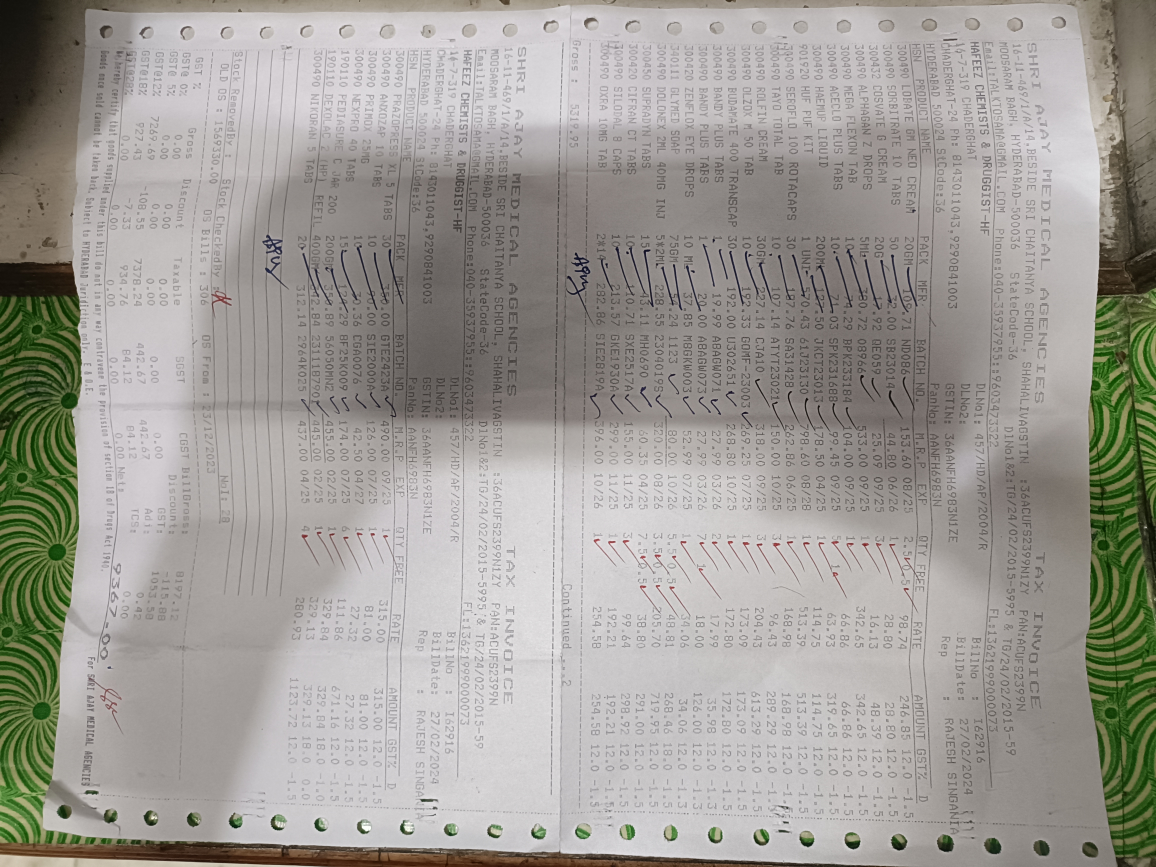 SHRI AJAY MEDICAL AGENCIES TAX INVOICE
16-11-469/1/A/14,BESIDE SRI CHAITANYA SCHOOL, SHAHALIVAGSTIN :36ACUFS2399N1ZY PAN:ACUFS2399N
MOOSARAM BAGH, HYDERABAD-500036 StateCode-36 DlNo1&2:TG/24/02/2015-5995 & TG/24/02/2015-59
Email:TALKTOSAMA@GMAIL.COM Phone:040-35937955::9603473322 FL:13621999000073
HAFEEZ CHEMISTS & DRUGGIST-HF DLNo1: 457/HD/AP/2004/R BillNo : I62916
16-7-319 CHADERGHAT DLNo2: BillDate: 27/02/2024
CHADERGHAT-24 Ph: 8143011043,9290841003 GSTIN: 36AANFH6983N1ZE Rep : RAJESH SINGANIA
HYDERABAD 500024 StCode:36 PanNo: AANFH6983N
HSN PRODUCT NAME PACK MFR BATCH NO. M.R.P EXP QTY FREE RATE AMOUNT GST% D
300490 LOBATE GM NEO CREAM 20GM 109.71 NDO86 153.60 08/25 98.74 246.85 12.0 -1.5
300490 SORBITRATE 10 TABS 50 32.00 SB23014 44.80 06/26 1 28.80 28.80 12.0 -1.5
30043 COSVATE G CREAM 20G 17.92 25.09 09/25 3 16.13 48.39 12.0 -1.5
300490 ALPHAGAN Z DROPS 5ML 380.72 533.00 1 342.65 342.65 12.0 -1.5
300490 MEGA FLEXON TAB 104.00 1 66.86 66.86 12.0 -1.5
300490 ACECLO PLUS TABS 10 71.03 SPK231688 99.45 5 63.93 319.65 12.0 -1.5
300490 HAEMUF LIQUID 200M 127.50 JKCT23013 178.50 04/25 1 114.75 114.75 12.0 -1.5
901920 HUF PUF KIT 1 UNI 570.43 61J323130 798.60 08/28 1 513.39 513.39 12.0 -1.5
300490 SEROFLO 100 ROTACAPS 30 187.76 SA31428 262.86 06/25 1 168.98 168.98 12.0 -1.5
300490 TAYO TOTAL TAB 10 107.14 ATYT23021 150.00 10/25 3 96.43 289.29 12.0 -1.5
300490 ROLFIN CREAM 30GM 227.14 CJA10 318.00 09/25 3 204.43 613.29 12.0 -1.5
300490 OLZOX M 50 TAB 10 192.33 GOMF-23003 269.25 07/25 1 173.09 173.09 12.0 -1.5
300490 BUDMATE 400 TRANSCAP 30 192.00 US02651 268.80 10/25 1 172.80 172.80 12.0 -1.5
300490 BANDY PLUS TABS 1 19.99 ABAGW071 27.99 03/26 12.99 12.0 -1.3
300490 BANDY PLUS TABS 1 20.00 ABAGW073 27.99 03/26 7 18.00 126.00 12.0 -1.5
300420 ZENFLOX EYE DROPS 10 ML 37.85 MBGKW003 52.99 07/26 1 34.06 34.06 12.0 -1.5
340111 GLYMED SOAP 75GM 54.24 1123 80.00 10/26 5.5 0.5 48.81 268.46 18.0 -1.5
300490 DOLONEX 40MG INJ 5*2ML 228.55 2304019S 320.00 08/26 3.5 0.5 205.70 719.95 12.0 -1.5
300450 SUPRADYN TABS 15 43.11 MH0690 60.35 04/25 7.5 0.5 38.80 291.00 12.0 -1.5
300420 CIFRAN CT TABS 10 110.71 SXE2517A 155.00 11/25 3 99.64 298.92 12.0 -1.5
300490 SILODAL 8 CAPS 10 213.57 GKE1930A 299.00 11/25 1 192.21 192.21 12.0 -1.5
300490 OXRA 10MG TAB 2*14 282.86 SIE2819A 396.00 10/26 1 254.58 254.58 12.0 -1.5
Gross : 5319.95 Continued ...2
SHRI AJAY MEDICAL AGENCIES TAX INVOICE
16-11-469/1/A/14,BESIDE SRI CHAITANYA SCHOOL, SHAHALIVAGSTIN :36ACUFS2399N1ZY PAN:ACUFS2399N
MOOSARAM BAGH, HYDERABAD-500036 StateCode-36 DlNo1&2:TG/24/02/2015-5995 & TG/24/02/2015-59
Email:TALKTOSAMA@GMAIL.COM Phone:040-35937955::9603473322 FL:13621999000073
HAFEEZ CHEMISTS & DRUGGIST-HF DLNo1: 457/HD/AP/2004/R BillNo : I62916
16-7-319 CHADERGHAT DLNo2: BillDate: 27/02/2024
CHADERGHAT-24 Ph: 8143011043,9290841003 GSTIN: 36AANFH6983N1ZE Rep : RAJESH SINGANIA
HYDERABAD 500024 StCode:36 PanNo: AANFH6983N
HSN PRODUCT NAME PACK MFR BATCH NO. M.R.P EXP QTY FREE RATE AMOUNT GST% D
300490 PRAZOPRESS XL 5 TABS 30 350.00 GTE4234A 490.00 09/25 1 315.00 315.00 12.0 -1.5
300490 ANXOZAP 10 TABS 10 90.00 SIE2000A 126.00 07/25 1 81.00 81.00 12.0 -1.5
300490 PRIMOX 25MG 10 30.36 CGA0076 42.50 04/27 1 27.32 27.32 12.0 -1.5
300490 NEXPRO 40 TABS 15 124.29 BF25K009 174.00 07/25 6 111.86 671.16 12.0 -1.5
190110 PEDIASURE C JAR 200 200G 56050MN2 455.00 02/25 1 329.84 329.84 18.0 -1.5
190110 DEXOLAC 2 (NP) REFIL 400GM 342.84 2311B870 445.00 02/25 1 329.13 329.13 18.0 0.0
300490 NIKORAN 5 TABS 20 312.14 2964K025 437.00 04/25 4 280.93 1123.72 12.0 -1.5
Stock RemovedBy : Stock CheckedBy: NoI: 28
OLD OS: 1569330.00 OS Bills : 306 OS From : 23/12/2023
GST % Gross Discount Taxable SGST CGST BillGross: 8197.12
GST@ 0% 0.00 0.00 0.00 0.00 0.00 Discount: -115.88
GST@ 5% 0.00 0.00 0.00 0.00 0.00 GST:
GST@12% 7269.69 -108.55 7378.24 442.67 442.67 Adj: 0.42
GST@18% 927.43 -7.33 934.76 84.12 84.12 TCS: 0.00
GST@28% 0.00 0.00 0.00 0.00 0.00 Net: 9367-00
We hereby certify that goods supplied under this bill do not in any way contravene the provision of section 18 of Drugs Act 1940.
Goods once sold cannot be taken back. Subject to HYDERABAD Juridiction only. E &O.E. For SHRI AJAY MEDICAL AGENCIES